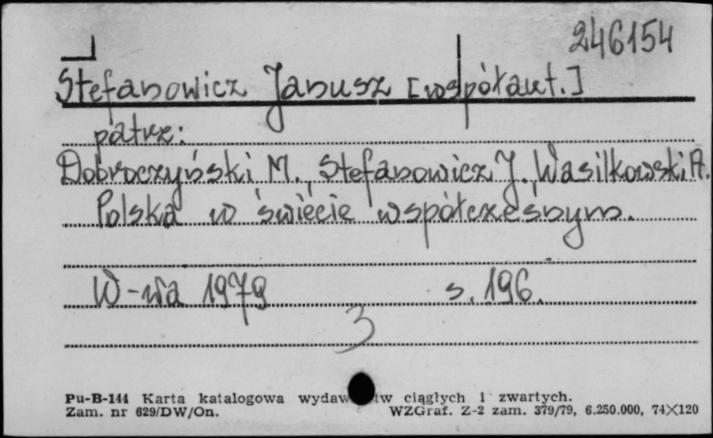 246154
Stefanowicz Janusz [współaut.]
patrz:
Dobroczyński M., Stefanowicz J. Wasilkowski A.
Polska w świecie współczesnym.
W-wa 1979 s. 196.
3
Pu-B-144 Karta katalogowa wydaw tw ciągłych i zwartych.
Zam. nr 629/DW/On. WZGraf. Z-2 zam. 379/79, 6.250.000, 74×120